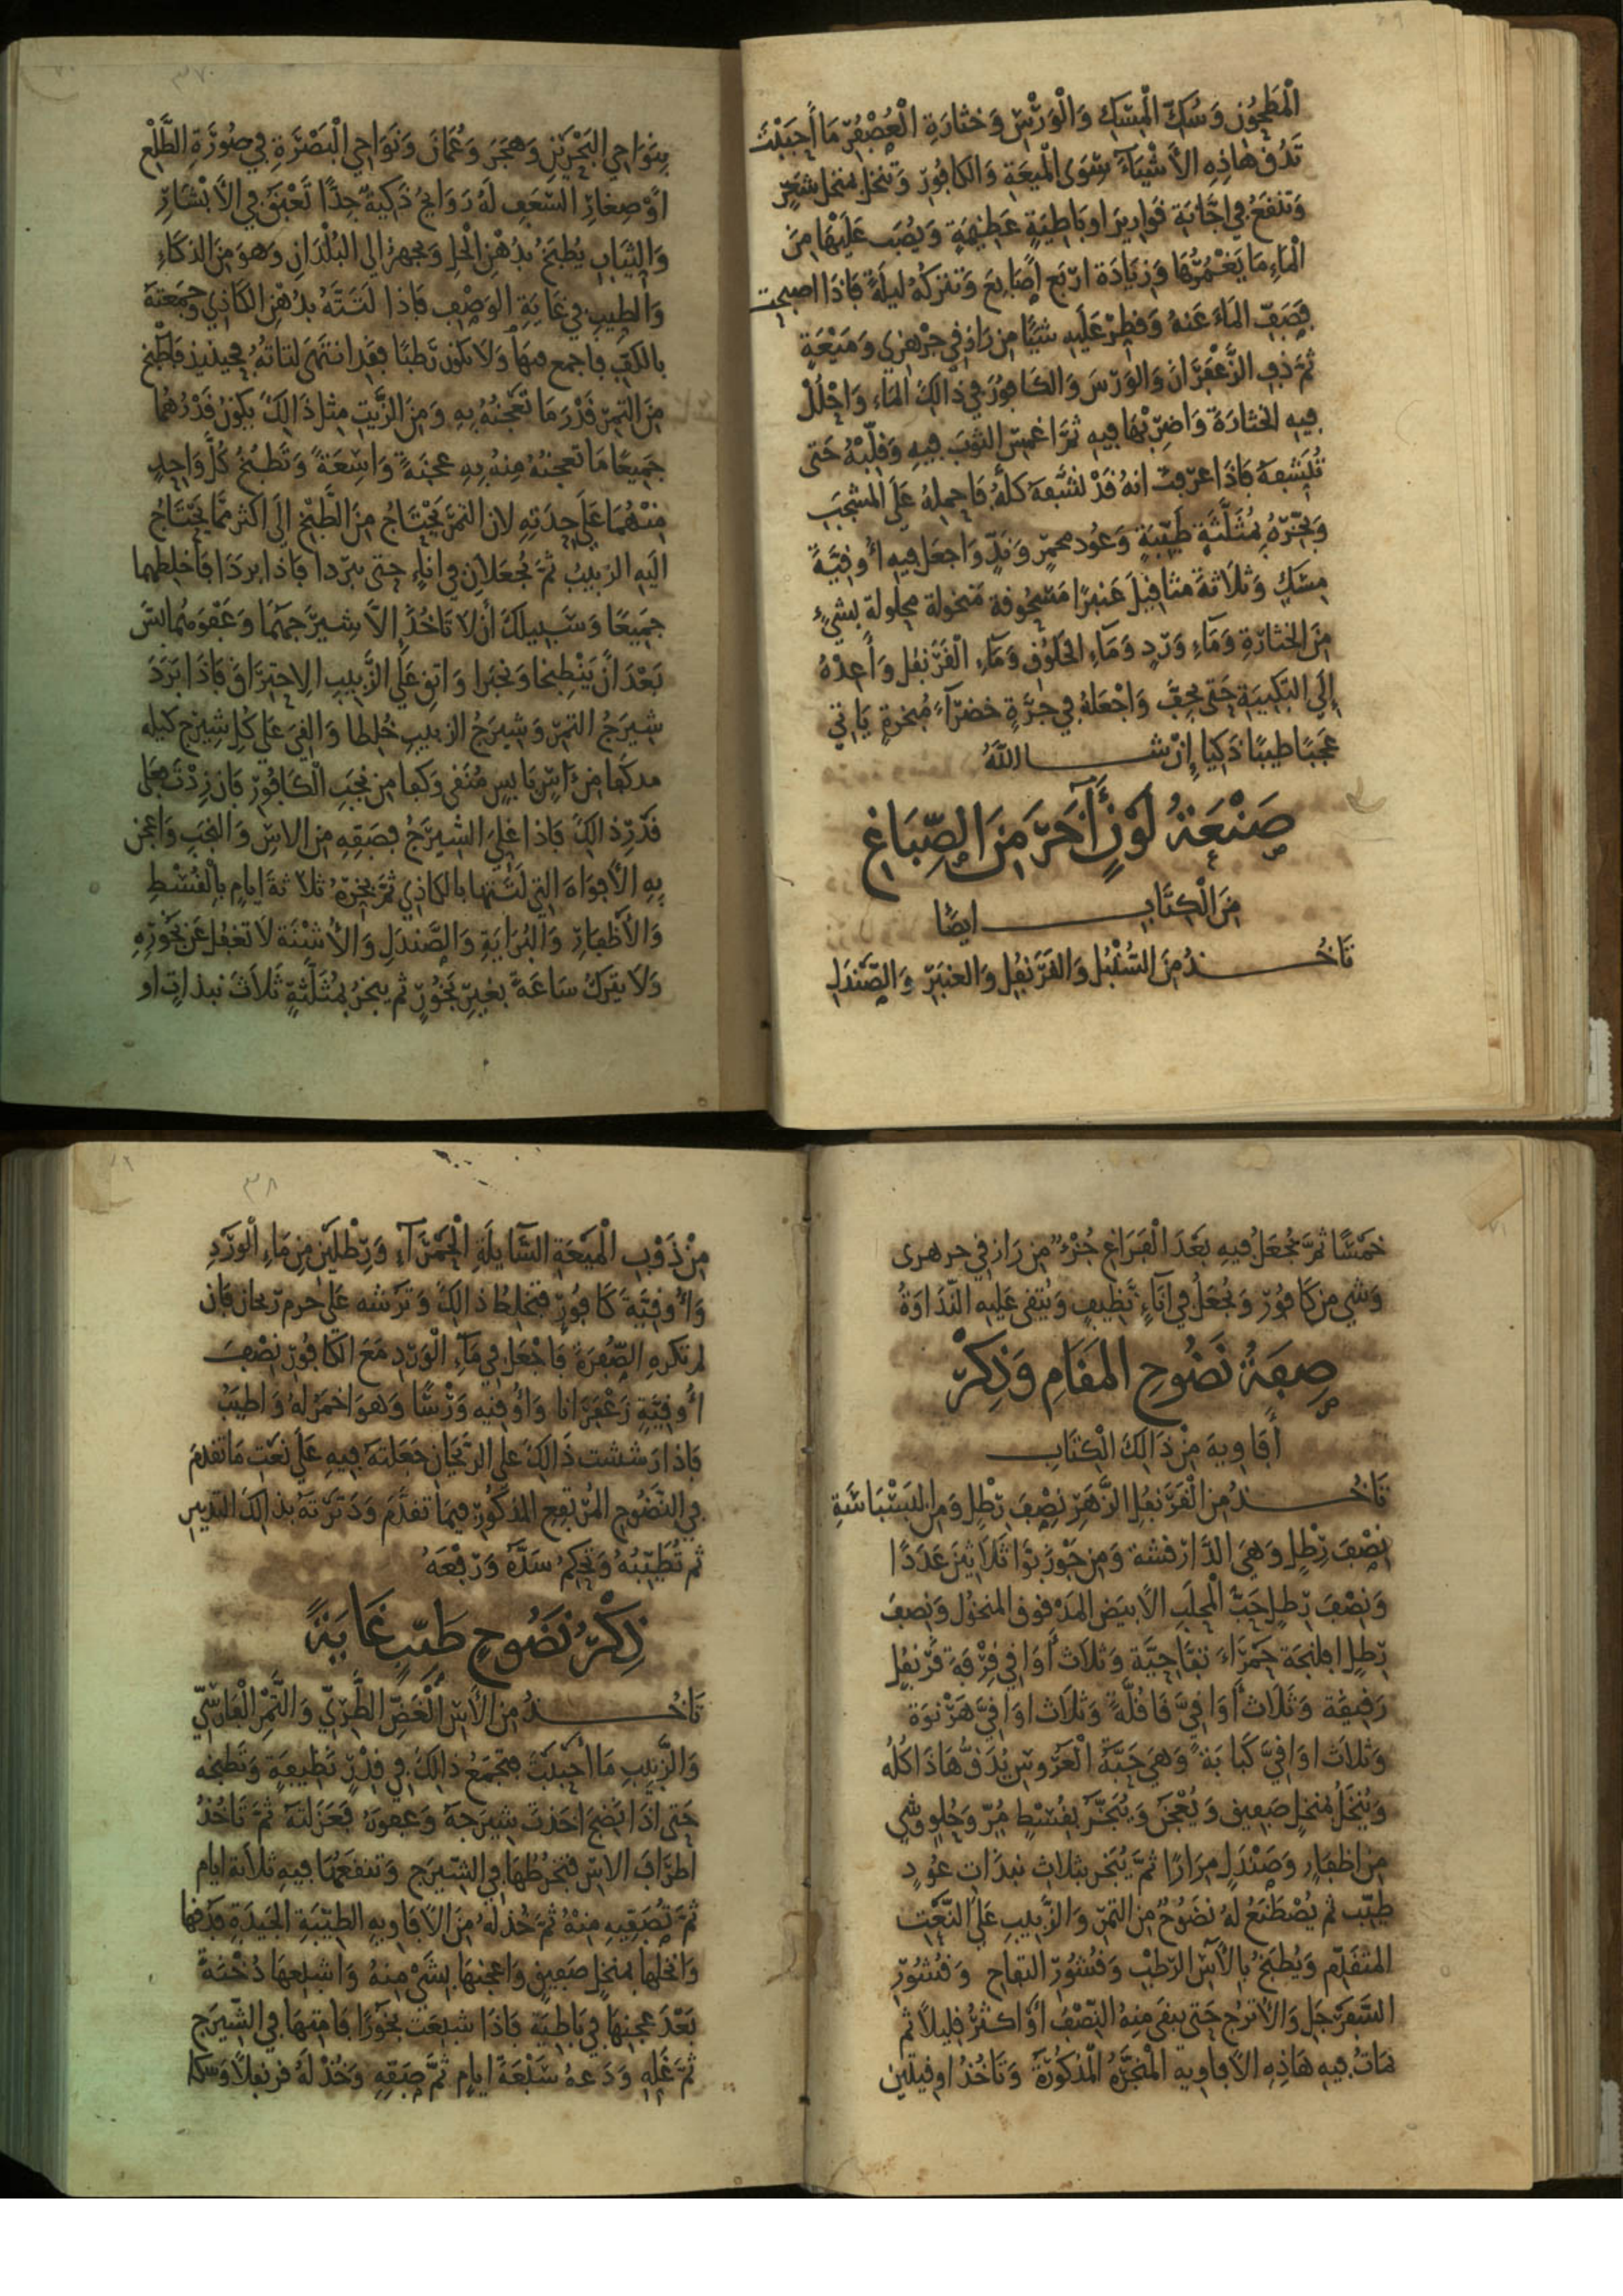 المطحون وَسُكِّ الْمِسْكِ وَالْوَرْسِ وَخثَارَةِ الْعُصْفُرِ مَا أَحْبَبْتَ
تَدُقّ هَاذِهِ الأَشْيَآءَ سِوَى الْمَيعَةِ وَالكافُورِ وَتنخل بمنخل شَعَرٍ
وَتَنْقَعُ فِي اجَّانَةِ قَوَارِيرَ اوبَاطِيَةٍ عَظِيمَةٍ وَيُصَب عَلَيْهَا مِنَ
الْمَاءِ مَا يَغْمُرُهَا وَزِيَادَة ارْبَع أَصَابِعَ وَتتركهُ ليلَةً فَاذَا اصبحت
فَصَفّ المَاءَ عَنهُ وَقطِرْ عَلَيهِ شَيًا مِن رَازِقِي جرهري وَمَيْعَةٍ
ثمَّ دُف الزَّعْفَرَانَ وَالوَرْسَ وَالكَافُورَ فِي ذَالِكَ المَاءِ وَاحْلُلْ
فِيهِ الخثارَةَ وَاضرِبْهَا فِيهِ ثمَّ اغمِسِ الثوبَ فِيهِ وَقلّبْهُ حَتى
تُشبِعَهُ فَاذَا عَرَفتَ انهُ قَدْ تشبَّعَهُ كلّهُ فَاحمِلهُ عَلَى المِشْجَبِ
وَبَخّرْهُ بِمُثَلَّثَةٍ طَيِّبَةٍ وَعُود محمّرٍ وَنِدٍّ وَاجعَل فِيهِ أوقِيَّةَ
مِسْكٍ وَثلَاثةَ مَثَاقِيلَ عَنبَرًا مَسْحُوقة مَنخُولة محلولة بِشَيءٍ
مِنَ الخثَارَةِ وَمَاءِ وَرْدٍ وَمَاءِ الخلُوقِ وَمَاءِ الْقَرَنفُل وَأَعِدْهُ
إِلَى التَّكْبِيَةِ حَتى يجفَّ وَاجْعَلهُ فِي جَرَّةٍ خَضرَآءَ مُبخرةٍ يَاتِي
عَجَبًا طيبًا ذَكيا إِنْ شَا اللهُ
صَنْعَةُ لَوْنٍ آخَرَ مِنَ الصِّبَاغِ
مِنَ الْكِتَابِ ايضًا
تَاخُذُ مِنَ السُّنْبُلِ وَالقَرَنفُلِ وَالعَنبَرِ وَالصَّندَلِ
بِنَوَاحِي البَحْرَيْنِ وَهجَرَ وَعُمَانَ وَنَوَاحِي الْبَصْرَةِ فِي صُورَةِ الطَّلْعِ
اوْ صِغَارِ السَّعَفِ لَهُ رَوَايحُ ذَكِيّةٌ جِدًّا تَعْبَقُ فِي الأَبْشَارِ
وَالثِّيَابِ يُطْبَخُ بِدُهْنِ الخلِ وَيجهزُ الى البُلْدَانِ وَهوَ مِنَ الذكَاءِ
وَالطيبِ فِي غَايَةِ الوَصْفِ فَاذا لتَتّهُ بدُهْنِ الكَاذِي وَجَمَعتهُ
بالكَفِّ فاجمع مَعهَا وَلَا تكون رَطبًا فقد انتهَى لتاتهُ فحينيذ فاطبخ
مِنَ التمرِ قدْرَ مَا تَعجنُهُ بِهِ وَمِنَ الزّبيبِ مِثل ذَالِكَ يكونُ قدْرُهُمَا
جَمِيعًا مَا تعجنهُ مِنهُ بِهِ عجنَةً وَاسِعَةً وَتَطبُخُ كُلَّ وَاحِدٍ
مِنْهُمَا عَلَى حِدَتِهِ لان التمرَ يَحْتَاجُ مِنَ الطَّبْخِ الَى اكثر ممّا يَحْتَاجُ
الَيهِ الزَّبِيبُ ثمَّ يُجعَلَانِ فِي انَاءٍ حَتى يبرَدا فاذا بردَا فَاخلطهما
جَمِيعًا وَسَبِيلكَ أن لَا تَاخُذَ إِلَّا شِيرَجَهُمَا وَعَفوَهُمَا ليسَ
بَعْدَ أَنْ يَنْطبخا وَنخبرا وَاتقِ عَلَى الزَّبِيبِ الاحتِرَاقَ فَاذَا بَرَدَ
شِيرَجُ التمرِ وَشِيرَجُ الزبيبِ خُلِطا وَالقِيَ عَلَى كُلِ شِيرَجٍ كيله
مدكفا مِن آسٍ يَابِسٍ مُنَقى وَكفا مِن نجَبِ الكَافُورِ فَان زِدْتَ فعَلى
قَدْرِ ذالِكَ فاذا غلِيَ الشِّيرَجُ فصَفِّهِ مِنَ الاسِ وَالنجَبِ وَاعجن
بِهِ الأَفوَاهَ التِي لتَتهَا بالكاذِي ثمَّ بَخِّرْهُ ثلَاثةَ ايَامٍ بِالْقُسْطِ
وَالأَظفَارِ وَالبُرَايَةِ وَالصَّندَلِ وَالأُشْنَةِ لَا تغفل عَن بَخُورِهِ
وَلَا يترَكُ سَاعَةً بغَيرِ بَخُورٍ ثم يبخرُ بِمُثَلّثةٍ ثَلَاثَ نبذاتٍ او
خمْسًا ثمَّ يُجْعَلُ فِيهِ بَعْدَ الْفَرَاغِ جُزْءٌ مِن رَازِقِي جرهرى
وَشَي مِن كَافُورٍ وَيُجْعَلُ فِي انَآءٍ نَظِيفٍ وَيُتقى عَلَيهِ النّدَاوَةُ
صِفَةُ نَضُوحِ المَقَامِ وَذِكْرُ
أَفَاوِيهَ مِنْ ذَالِكَ الْكِتَابِ
تَاخُذُ مِنَ الْقَرَنفُلِ الزَّهْرِ نِصْفَ رِطْلٍ وَمِنَ البَسْبَاسَةِ
نِصْفَ رِطْلٍ وَهِيَ الدَّارَكِسَة وَمِن جَوْزِ بَوَّا ثلَاثِينَ عَدَدًا
وَنِصْفَ رِطلٍ حَبّ الْمحلَبِ الأَبيَضِ المَدْقوقِ المَنخُولِ وَنِصفَ
رِطلٍ افلنجة حَمْرَاءَ تفَّاحِيَّة وَثلَاث أَوَاقِي قِرْفَةَ قَرَنفُلٍ
رَقِيقَة وَثَلَاث أَوَاقِيَّ قَاقُلَّةً وَثلَاث اوَاقِيَّ هَرْنوَة
وَثلَاث اوَاقِيَّ كَبَابَةً وَهِيَ حَبَّةُ الْعَرُوسِ يُدَقُّ هَاذَا كلُهُ
وَيُنخَلُ بمُنخُلٍ صَفِيقٍ وَيُعْجَن وَيُبَخّر بِقُسْطٍ مُرٍّ وَحُلوٍ وَشَي
مِن اظفَارٍ وَصَنْدَلٍ مِرَارًا ثمَّ يُبَخر بثلاث نبذَاتِ عُودٍ
طيّبٍ ثم يُصْطَنَعُ لهُ نَضُوحٌ مِنَ التمرِ وَالزَّبِيبِ عَلَى النَّعْت
المتقَدِّمِ وَيُطْبَخُ بِالأَسِ الرَّطْبِ وَقُشُورِ التفاحِ وَقُشُورِ
السَّفَرْجَلِ وَالأُترُجِ حَتى يبقى مِنهُ النِّصْفُ أَوْ اكثرُ قليلًا ثم
تمَاثُ فِيهِ هَاذِهِ الأَفَاوِيه الْمبَخَّرَةُ المَذْكُورَةُ وَتَاخُذُ اوقيتين
مِنْ ذَوْبِ الْمَيعَةِ السَّايلَةِ الْحَمْرَآءِ وَرِطْلَيْنِ مِن مَاءِ الْوَرْدِ
وَأُوقِيَّةَ كَافُورٍ فَتَخلِطُ ذَالِكَ وَتَرشه عَلَى حزمِ رَيحَان فَان
لم تكرهِ الصُّفرَةَ فَاجْعَل فِي مَآءِ الْوَرْدِ مَعَ الكَافُورِ نِصْفَ
أُوقِيَّةِ زَعْفَرَانا وَأُوقِيّة وَرْسًا وَهوَ اخمَر لهُ وَاطيَبُ
فَاذا رَششت ذَالِكَ عَلى الرّيحَانِ جَعَلتهُ فِيهِ عَلَى نَعْتِ مَا تقدمَ
فِي النَّضُوحِ المُرْتفِعِ المَذكُورِ فِيمَا تقدَّمَ وَدَبّرْتَهُ بذالِكَ التدبير
ثم تُطَيّبُهُ وَتُحكِمُ سَدَّهُ وَرَفْعَهُ
ذِكْرُ نَضُوحٍ طَيِّبٍ غَايَةً
تَاخُذُ مِنَ الأَسِ الْغَضِّ الطَّرِيِّ وَالتَّمْرِ الْفَارِسِيِّ
وَالزَّبِيبِ مَا أَحْبَبْتَ فتَجْمَعُ ذَالِكَ فِي قِدْرٍ نَظِيفَةٍ وَتَطبخه
حَتى اذَا نَضِجَ اخَذتَ شِيرَجَهُ وَعفوَهُ فَعَزَلتهُ ثمَّ تَاخُذُ
اطرَافَ الاسِ فتَخرُطُهَا فِي الشِّيرَجِ وَتنقعُهَا فِيهِ ثلَاثة ايام
ثمَّ تُصَفِّيهِ مِنْهُ ثمَّ خُذْ لَهُ مِنَ الأَفَاوِيهِ الطّيّبَةِ الجَيدَةِ فدُقهَا
وَانخلهَا بمنخلٍ صَفِيقٍ وَاعجنهَا بِشَيْ مِنهُ وَاشبِعهَا دُخْنَةً
بَعْدَ عَجنِهَا فِي بَاطِيَةٍ فَاذَا شبِعَتْ بَخُورًا فَامِثهَا فِي الشّيرَجِ
ثمَّ غَلِّهِ وَدَعهُ سَبْعَةَ ايَامٍ ثمَّ صَفِّهِ وَخُذْ لَهُ قرنفلًا وَسكا